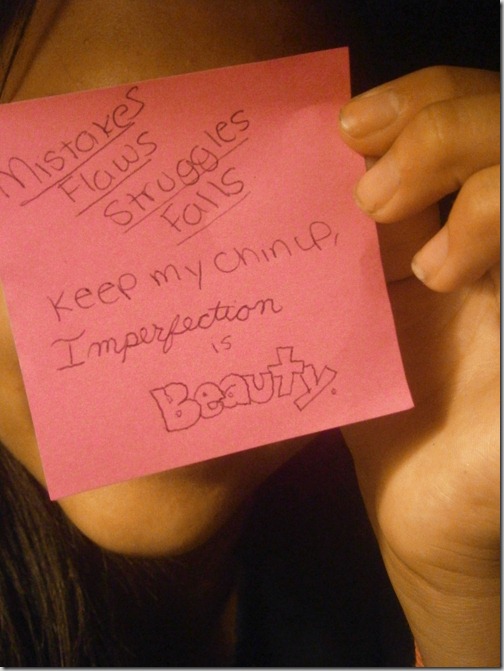 Mistakes
Flaws
Struggles
Falls
Keep my chin up,
Imperfection
is
Beauty.